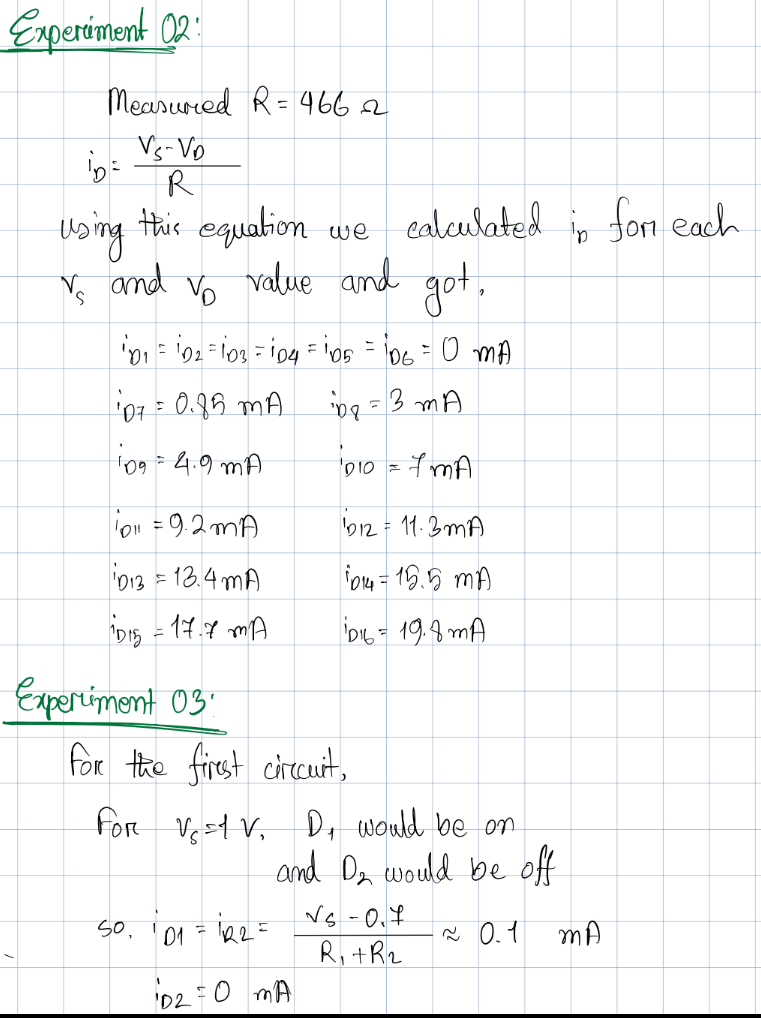 Experiment 02:
Measured R = 466 Ω
i_D = (V_S - V_D) / R
Using this equation we calculated i_D for each
V_S and V_D value and got,
i_D1 = i_D2 = i_D3 = i_D4 = i_D5 = i_D6 = 0 mA
i_D7 = 0.85 mA i_D8 = 3 mA
i_D9 = 4.9 mA i_D10 = 7 mA
i_D11 = 9.2 mA i_D12 = 11.3 mA
i_D13 = 13.4 mA i_D14 = 15.5 mA
i_D15 = 17.7 mA i_D16 = 19.8 mA
Experiment 03:
For the first circuit,
For V_S = 1 V, D_1 would be on
and D_2 would be off
so, i_D1 = i_R2 = (V_S - 0.7) / (R_1 + R_2) ≈ 0.1 mA
i_D2 = 0 mA